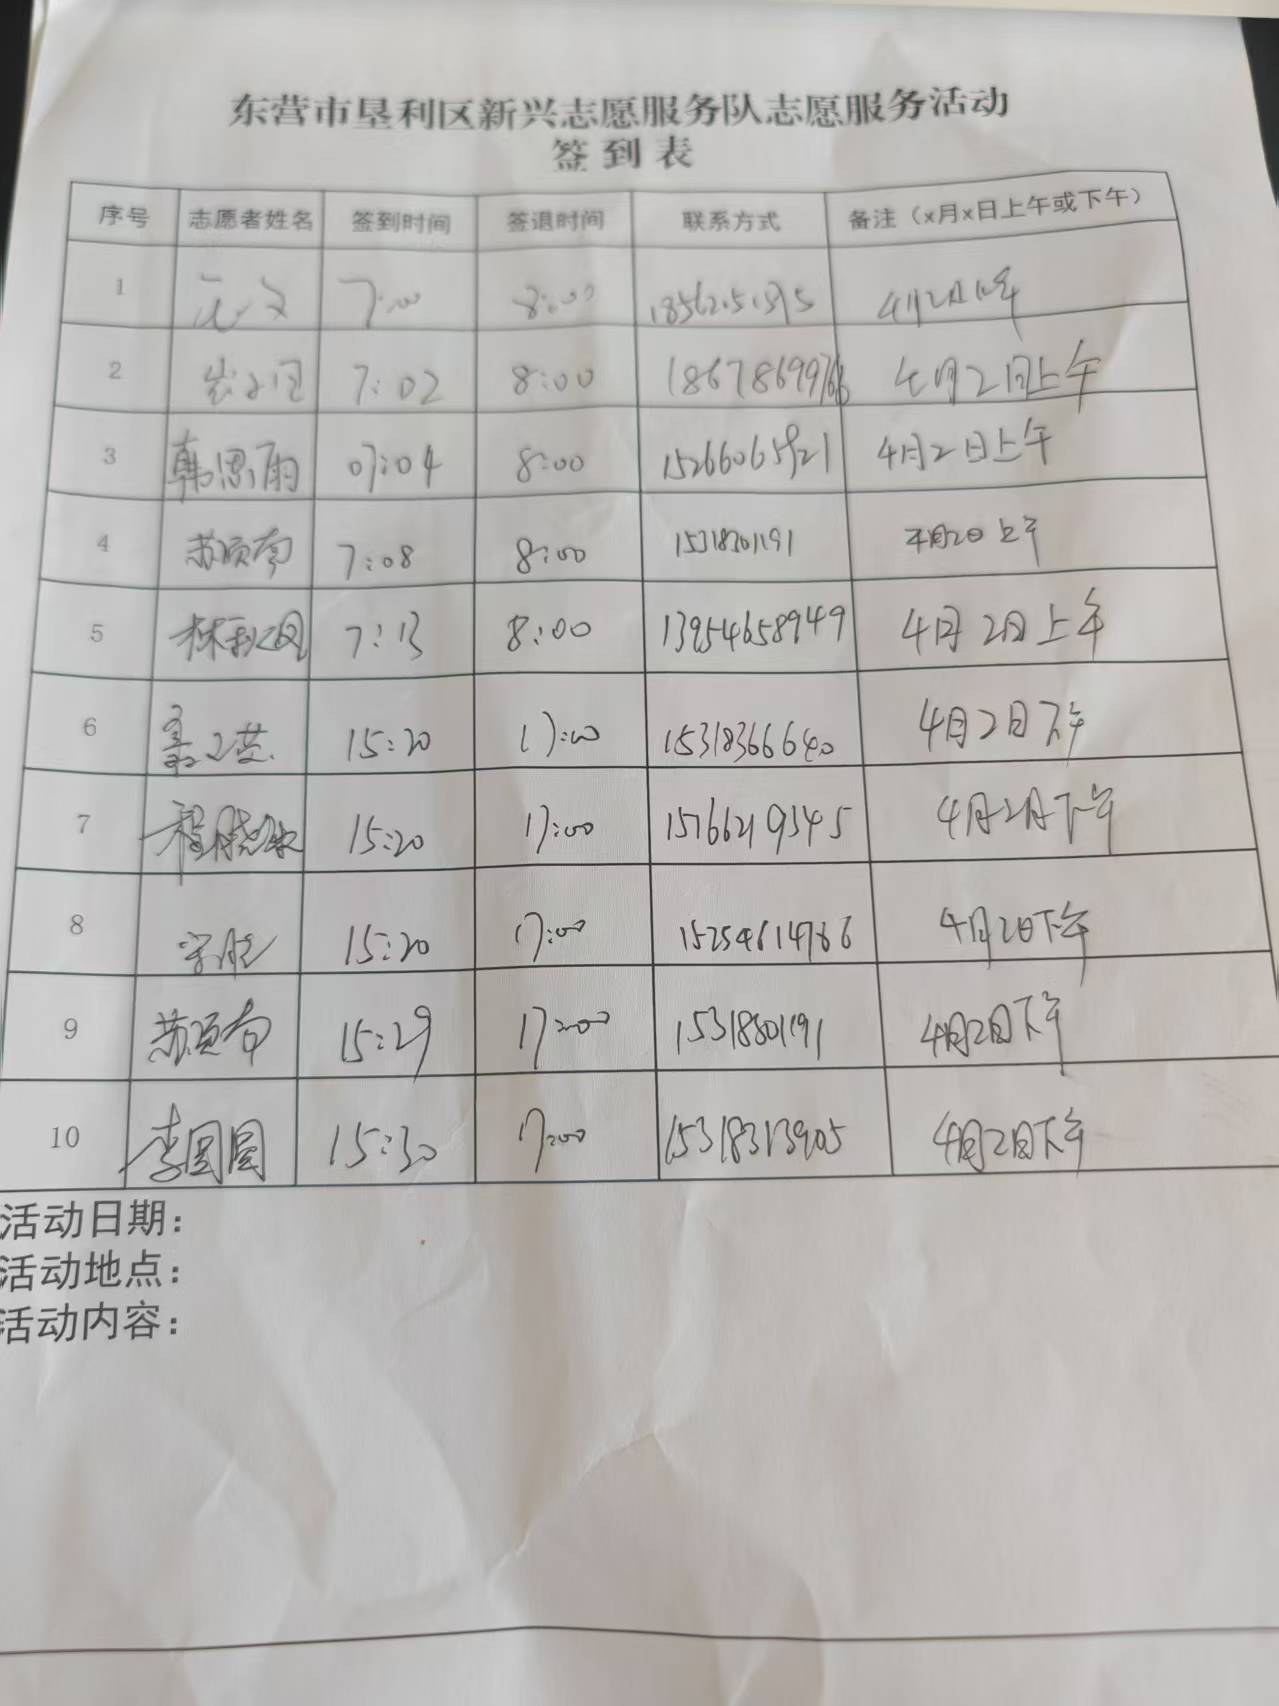 东营市垦利区新兴志愿服务队志愿服务活动
签到表
序号 志愿者姓名 签到时间 签退时间 联系方式 备注（x月x日上午或下午）
1 7:00 8:00 4月2日上午
2 7:02 8:00 4月2日上午
3 韩思雨 07:04 8:00 15266065921 4月2日上午
4 7:08 8:00 4月2日上午
5 7:13 8:00 13954658949 4月2日上午
6 15:20 17:00 15318366640 4月2日下午
7 程晓 15:20 17:00 15766219345 4月2日下午
8 15:20 17:00 15254614766 4月2日下午
9 15:29 17:00 15318801191 4月2日下午
10 李圆圆 15:30 17:00 15318313905 4月2日下午
活动日期：
活动地点：
活动内容：